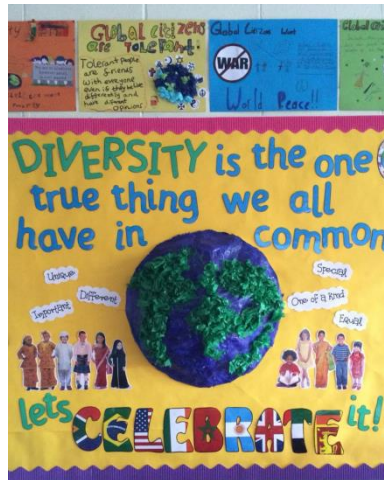 GLobal citizens
are ToLeRant!
Tolerant people
are friends
with everyone
even if they believe
differently and
have different
opinions
Global Citizens Want
WAR
World Peace!!
DIVERSITY is the one
true thing we all
have in common
Unique
Different
Important
Special
One of a Kind
Equal
lets CELEBRATE it!